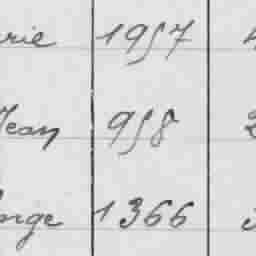 rie 1957 4
Jean 958 2
orge 1366 3